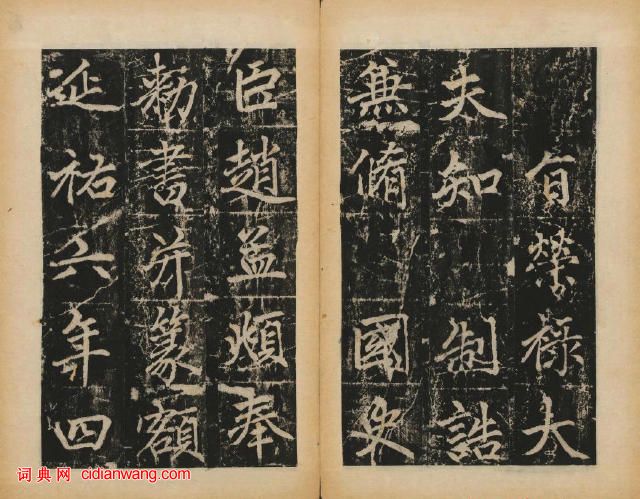 旨榮祿大
夫知制誥
兼脩國史
臣趙孟頫奉
勅書并篆額
延祐六年四
词典网 cidianwang.com